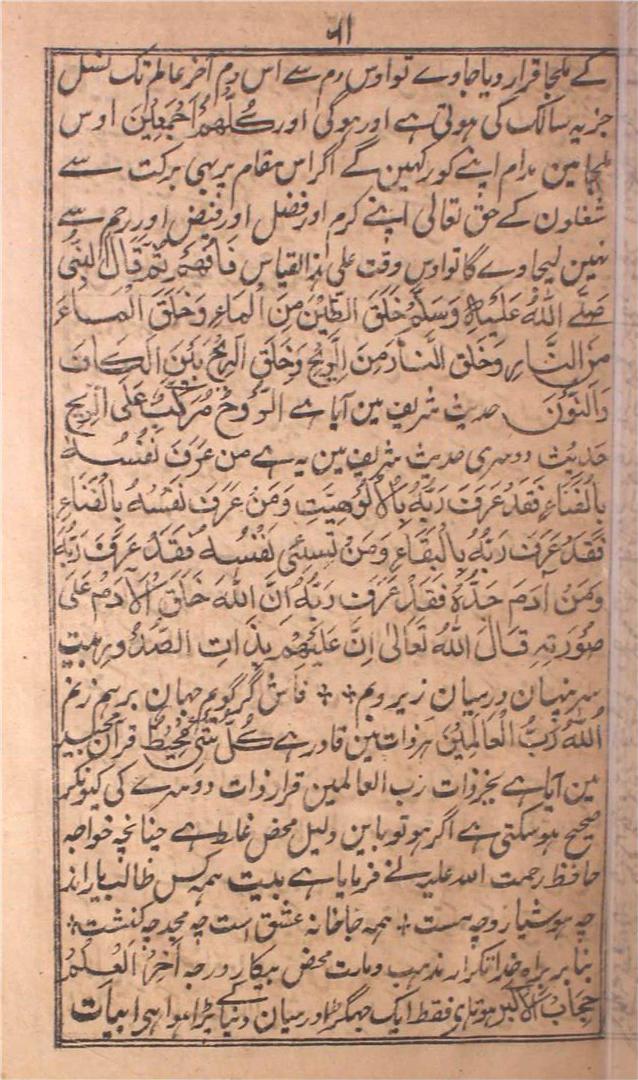 ۶۱
کے ملجا قرار دیا جاوے تو اوس دم سے اس دم آخر عالم تک نسل
جزیہ سالک کی ہوتی ہے اور ہوگی اور کُلُّهُمْ اَجْمَعِیْنَ اوس
ملجا مین مدام اپنے کو رکہین گے اگر اس مقام پر بہی برکت سے
شغلون کے حق تعالی اپنے کرم اور فضل اور فیض اور رحم سے
نہین لیجاوے گا تو اوس وقت علی ہذا القیاس فَافْهَمْ ثُمَّ قَالَ النَّبِیُّ
صَلَّے اللّٰهُ عَلَیْهِ وَسَلَّمْ خَلَقَ الطِّیْنَ مِنَ الْمَاءِ وَخَلَقَ الْمَاءَ
مِنَ النَّارِ وَخَلَقَ النَّارَ مِنَ الرِّیْحِ وَخَلَقَ الرِّیْحَ بَیْنَ الْکَافِ
وَالنُّوْنَ حدیث شریف مین آیا ہے الرُّوْحُ مُرَکَّبٌ عَلَی الرِّیْحِ
حَدِیْث دوسری حدیث شریف مین یہ ہے مَن عَرَفَ نَفْسُهٗ
بِالْفَنَاءِ فَقَدْ عَرَفَ رَبَّهٗ بِالْاُلُوْهِیَّتِ وَمَنْ عَرَفَ نَفْسَهٗ بِالْفَنَاءِ
فَقَدْ عَرَفَ رَبُّهٗ بِالْبَقَاءِ وَمَنْ نَسِیَ نَفْسُهٗ فَقَدْ عَرَفَ رَبُّهٗ
وَمَنْ آدَمَ جَدُّهٗ فَقَدْ عَرَفَ رَبُّهٗ اِنَّ اللّٰهَ خَلَقَ الْاٰدَمُ عَلٰی
صُوْرَتِهٖ قَالَ اللّٰهُ تَعَالٰی اِنَّ عَلَیْهِمْ بِذَاتِ الصُّدُوْرِ بیت
سر پنہان درمیان زیر و بم ؞ ؞ فاش گر گویم جہان برہم زنم
اَللّٰهُ رَبُّ الْعَالَمِیْنَ ہر ذات مین قادر ہے کُلِّ شَیْءٍ مُّحِیْطٌ قرآن مجید
مین آیا ہے بجز ذات رب العالمین قرار ذات دوسرے کی کیونکر
صحیح ہو سکتی ہے اگر ہو تو باین دلیل محض غلط ہے چنانچہ خواجہ
حافظ رحمت اللہ علیہ نے فرمایا ہے بیت ہمہ کس طالب یار اند
چہ ہوشیار و چہ مست ؞ ہمہ جا خانہ عشق است چہ مسجد چہ کنشت ؞
بنابر براہ خدا تکرار مذہب و ملت محض بیکار درجہ آخِرُ الْعِلْمُ
حِجَابُ الْاَکْبَرِ ہوتا ہی فقط ایک جہگڑا درمیان دنیا کے پڑا ہوا ہی ابیات